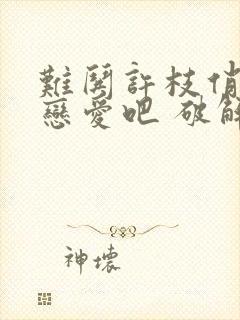 難鬨許枝俏
戀愛吧 破解
神壞